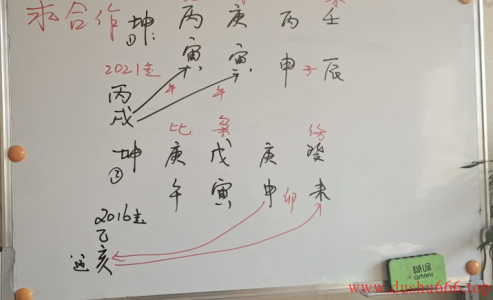 求合作
坤 丙 庚 丙 壬
① 寅 寅 申 子 辰
2021起
丙戌 午 午
比 枭 伤
坤 庚 戊 庚 癸
② 午 寅 申 卯 未
2016起
乙亥
运
www.dushu666.top